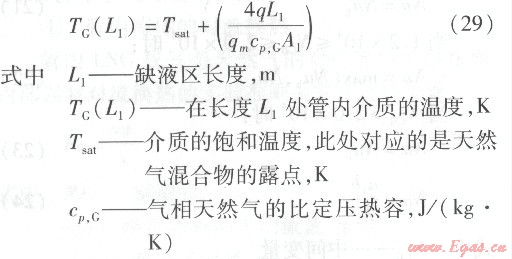 T_G(L_1) = T_sat + (4qL_1 / q_m c_{p,G} A_1) (29)
式中 L_1——缺液区长度,m
T_G(L_1)——在长度 L_1 处管内介质的温度,K
T_sat——介质的饱和温度,此处对应的是天然
气混合物的露点,K
c_{p,G}——气相天然气的比定压热容,J/(kg·
K)
www.Egas.cn